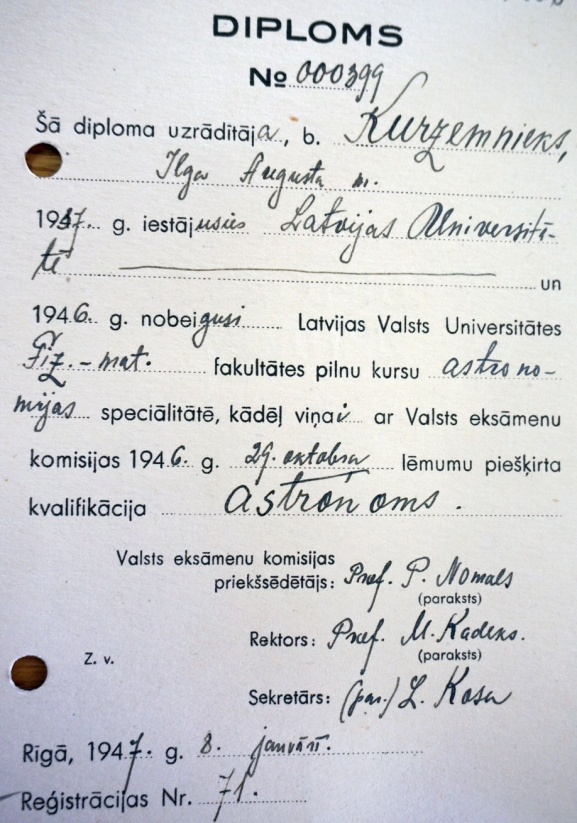 DIPLOMS
№ 000399
Šā diploma uzrādītāja, b. Kurzemnieks,
Ilga Augusta m.
1937. g. iestājusies Latvijas Universitā-
tē un
1946. g. nobeigusi Latvijas Valsts Universitātes
Fiz.-mat. fakultātes pilnu kursu astrono-
mijas speciālitātē, kādēļ viņai ar Valsts eksāmenu
komisijas 1946. g. 29. oktobra lēmumu piešķirta
kvalifikācija astronoms.
Valsts eksāmenu komisijas
priekšsēdētājs: Prof. P. Nomals
(paraksts)
Rektors: Prof. M. Kadeks.
(paraksts)
Z. v.
Sekretārs: (par.) L. Kosa
Rīgā, 1947. g. 8. janvārī.
Reģistrācijas Nr. 71.